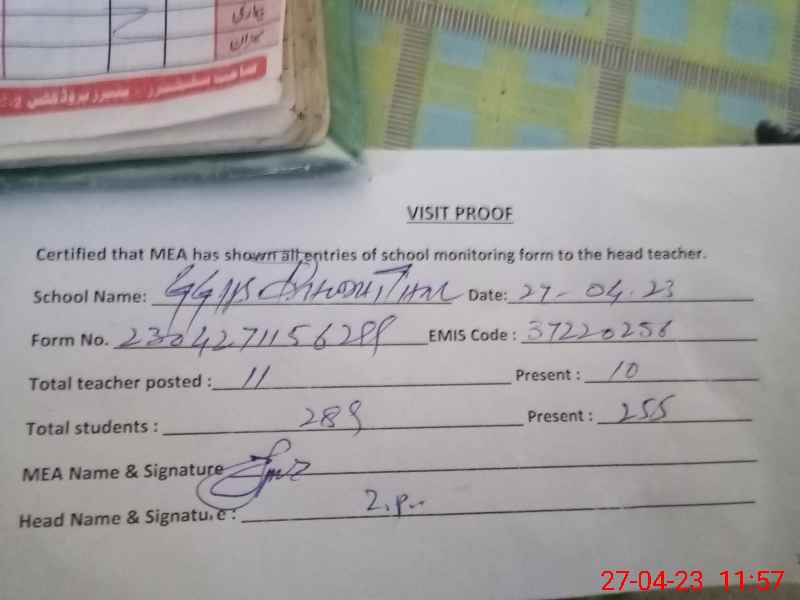 بیماری
VISIT PROOF
Certified that MEA has shown all entries of school monitoring form to the head teacher.
School Name: GGHS Date: 27-04-23
Form No. EMIS Code : 37220256
Total teacher posted : 11 Present : 10
Total students : 289 Present : 255
MEA Name & Signature
Head Name & Signature :
27-04-23 11:57